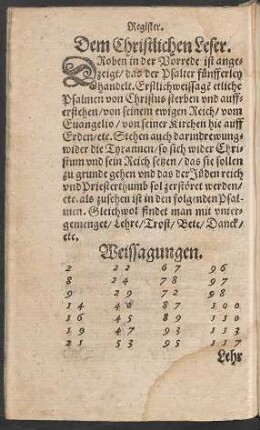 Register.
Dem Christlichen Leser.
DRoben in der Vorrede ist ange-
zeigt/ das der Psalter fünfferley
handelt. Erstlich weissagẽ etliche
Psalmen von Christus sterben vnd auff-
erstehen/ von seinem ewigen Reich/ vom
Euangelio/ von seiner Kirchen hie auff
Erden/ etc. Stehen auch darin drewung-
wider die Tyrannen/ so sich wider Chri-
stum vnd sein Reich setzen/ das sie sollen
zu grunde gehen vnd das der Jüden reich
vnd Priesterthumb sol zerstöret werden/
etc. als zusehen ist in den folgenden Psal-
men. Gleichwol findet man mit vnter-
gemenget/ Lehre/ Trost/ Bete/ Danck/
etc.
Weissagungen.
2 22 67 96
8 24 78 97
9 29 72 98
14 40 87 100
16 45 89 110
19 47 93 113
21 53 95 117
Lehr